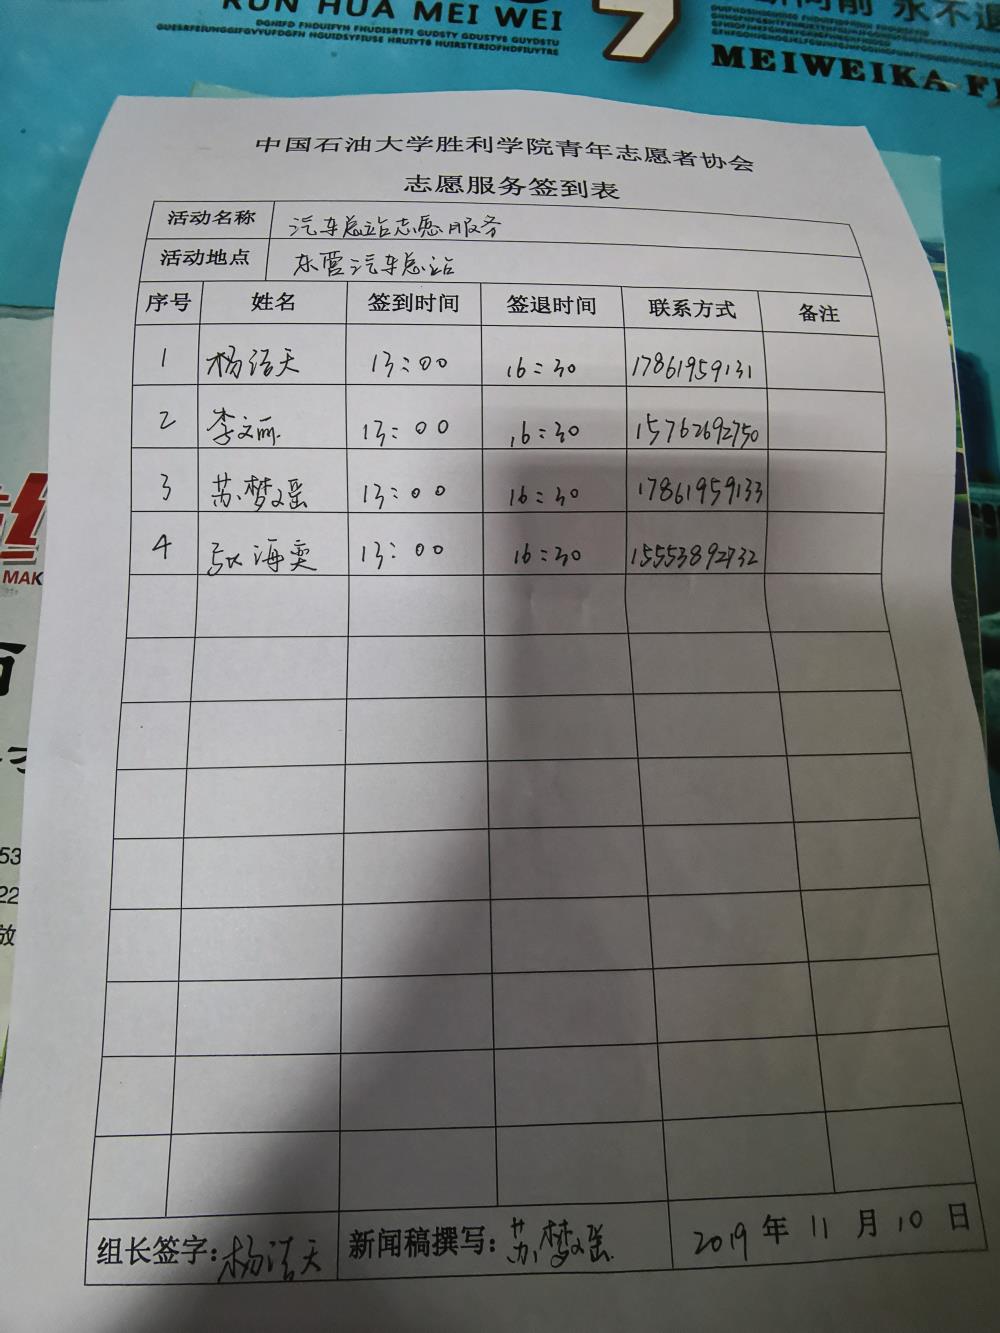 RUN HUA MEI WEI
9
永不退
MEIWEIKA
中国石油大学胜利学院青年志愿者协会
志愿服务签到表
活动名称 汽车总站志愿服务
活动地点 东营汽车总站
序号 姓名 签到时间 签退时间 联系方式 备注
1 杨浩天 13:00 16:30 17861959131
2 李文丽 13:00 16:30 15762692750
3 苏梦瑶 13:00 16:30 17861959133
4 张海雯 13:00 16:30 15553892732
MAK
53
22
放
组长签字:杨浩天 新闻稿撰写:苏梦瑶 2019年11月10日